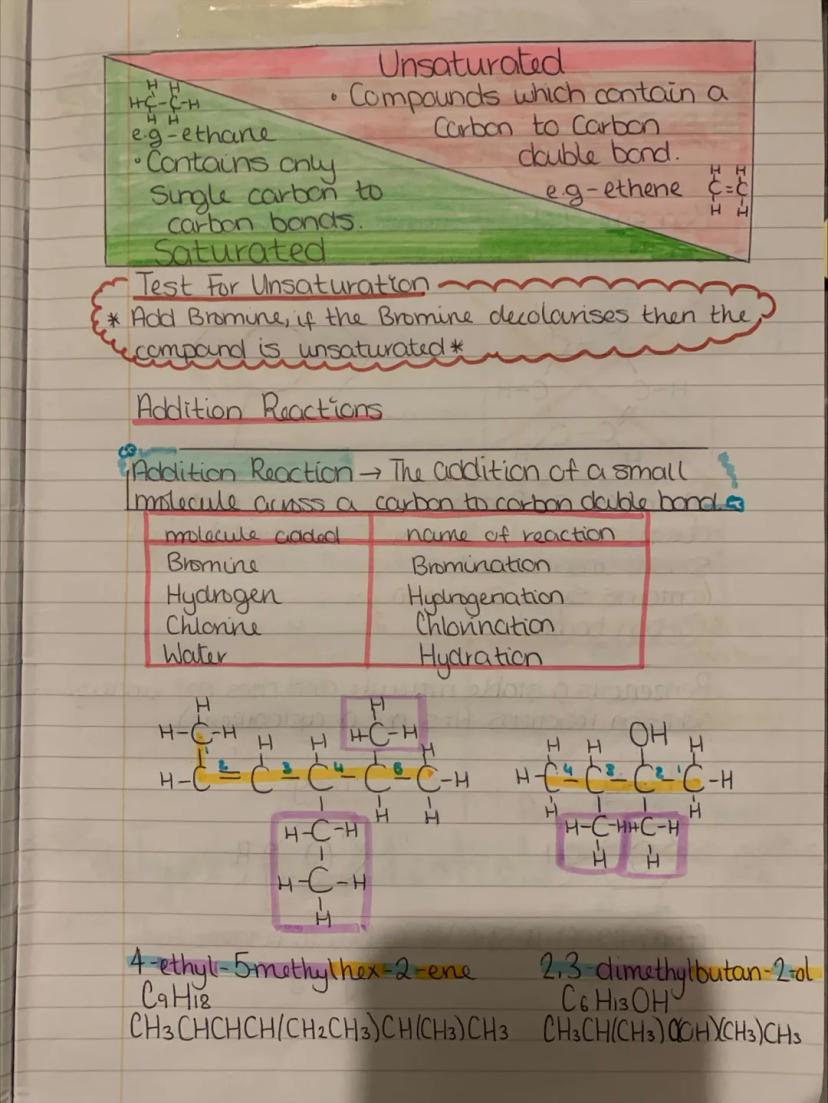 Unsaturated
• Compounds which contain a
Carbon to Carbon
double bond.
e.g-ethene
H H
C=C
H H
H H
H-C-C-H
H H
e.g-ethane
• Contains only
single carbon to
carbon bonds.
Saturated
Test For Unsaturation
* Add Bromine, if the Bromine decolarises then the
compound is unsaturated *
Addition Reactions
Addition Reaction → The addition of a small
molecule across a carbon to carbon double bond.
molecule added name of reaction
Bromine Bromination
Hydrogen Hydrogenation
Chlorine Chlorination
Water Hydration
H H
H-C-H H-C-H
1 H H H
H-C 2 = C 3 - C 4 - C 5 - C-H
H H
H-C-H
H-C-H
H
H H OH H
H-C 4 - C 3 - C 2 - 1 C-H
H H
H-C-H H-C-H
H H
4-ethyl-5methylhex-2-ene 2,3-dimethylbutan-2-ol
C9H18 C6H13OH
CH3CHCHCH(CH2CH3)CH(CH3)CH3 CH3CH(CH3)C(OH)(CH3)CH3